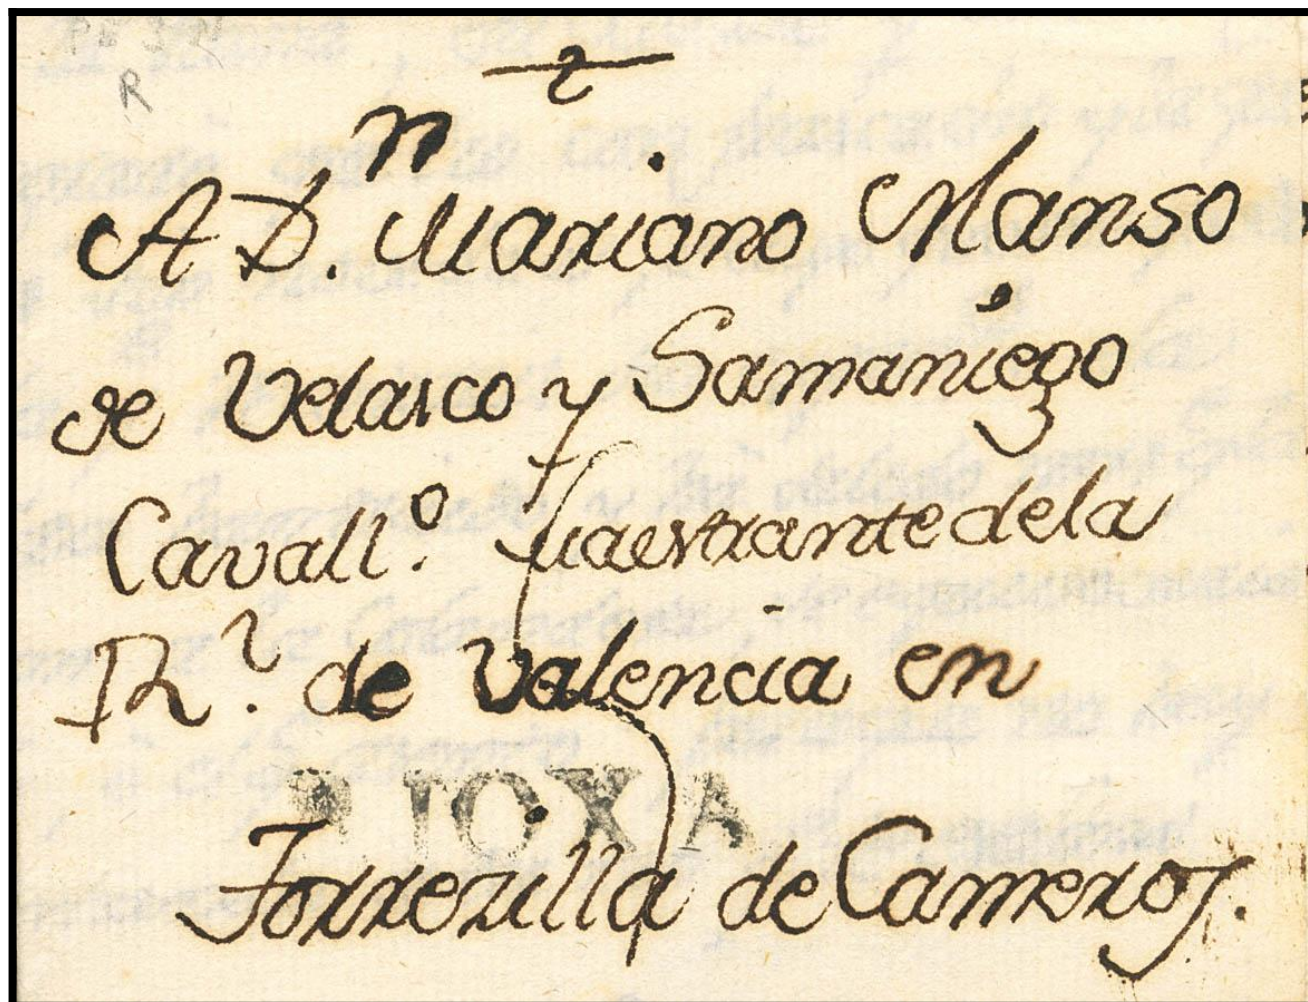 R
2
n
A D. Mariano Manso
de Velasco y Samaniego
Cavall.º Maestrante de la
R.l de Valencia en
RIOXA
Torrezilla de Cameros.